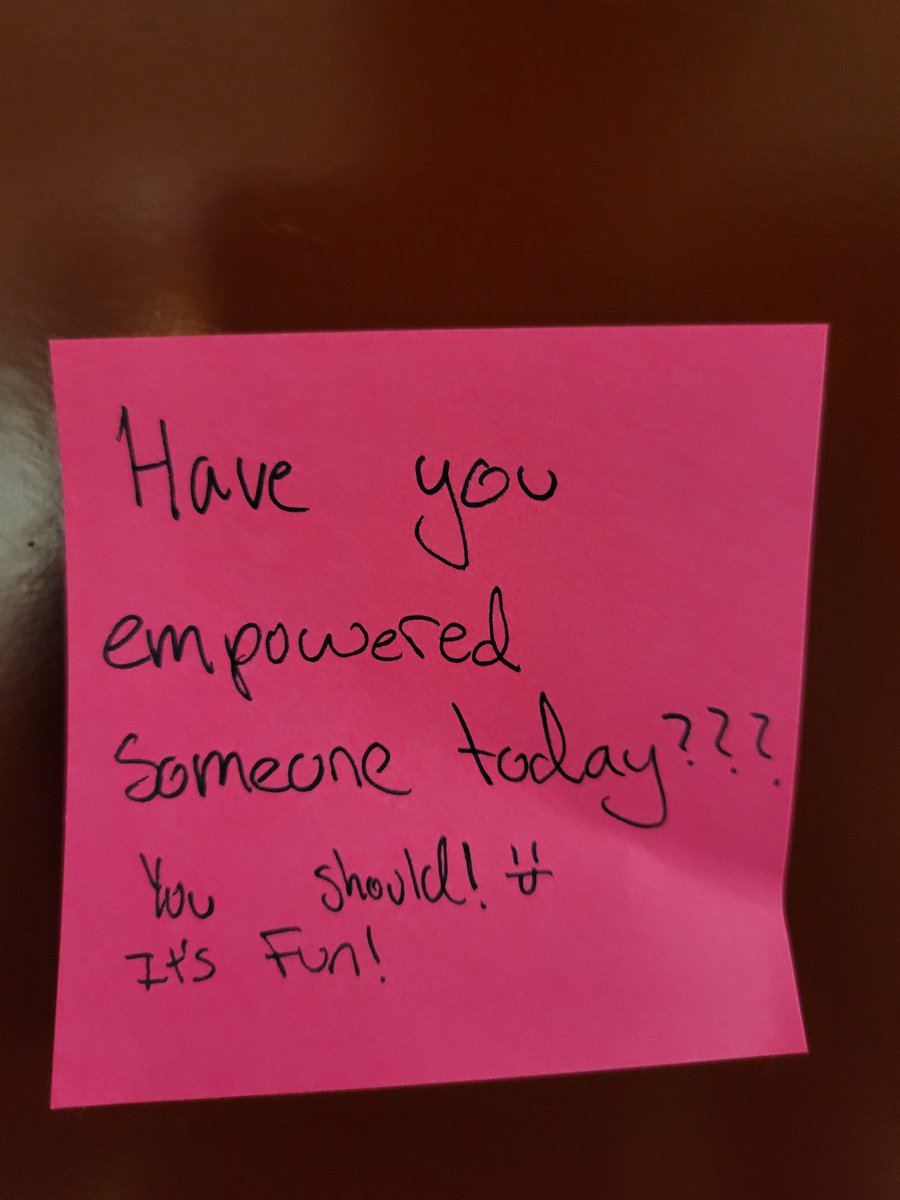 Have you
empowered
someone today???
You should!
It's Fun!